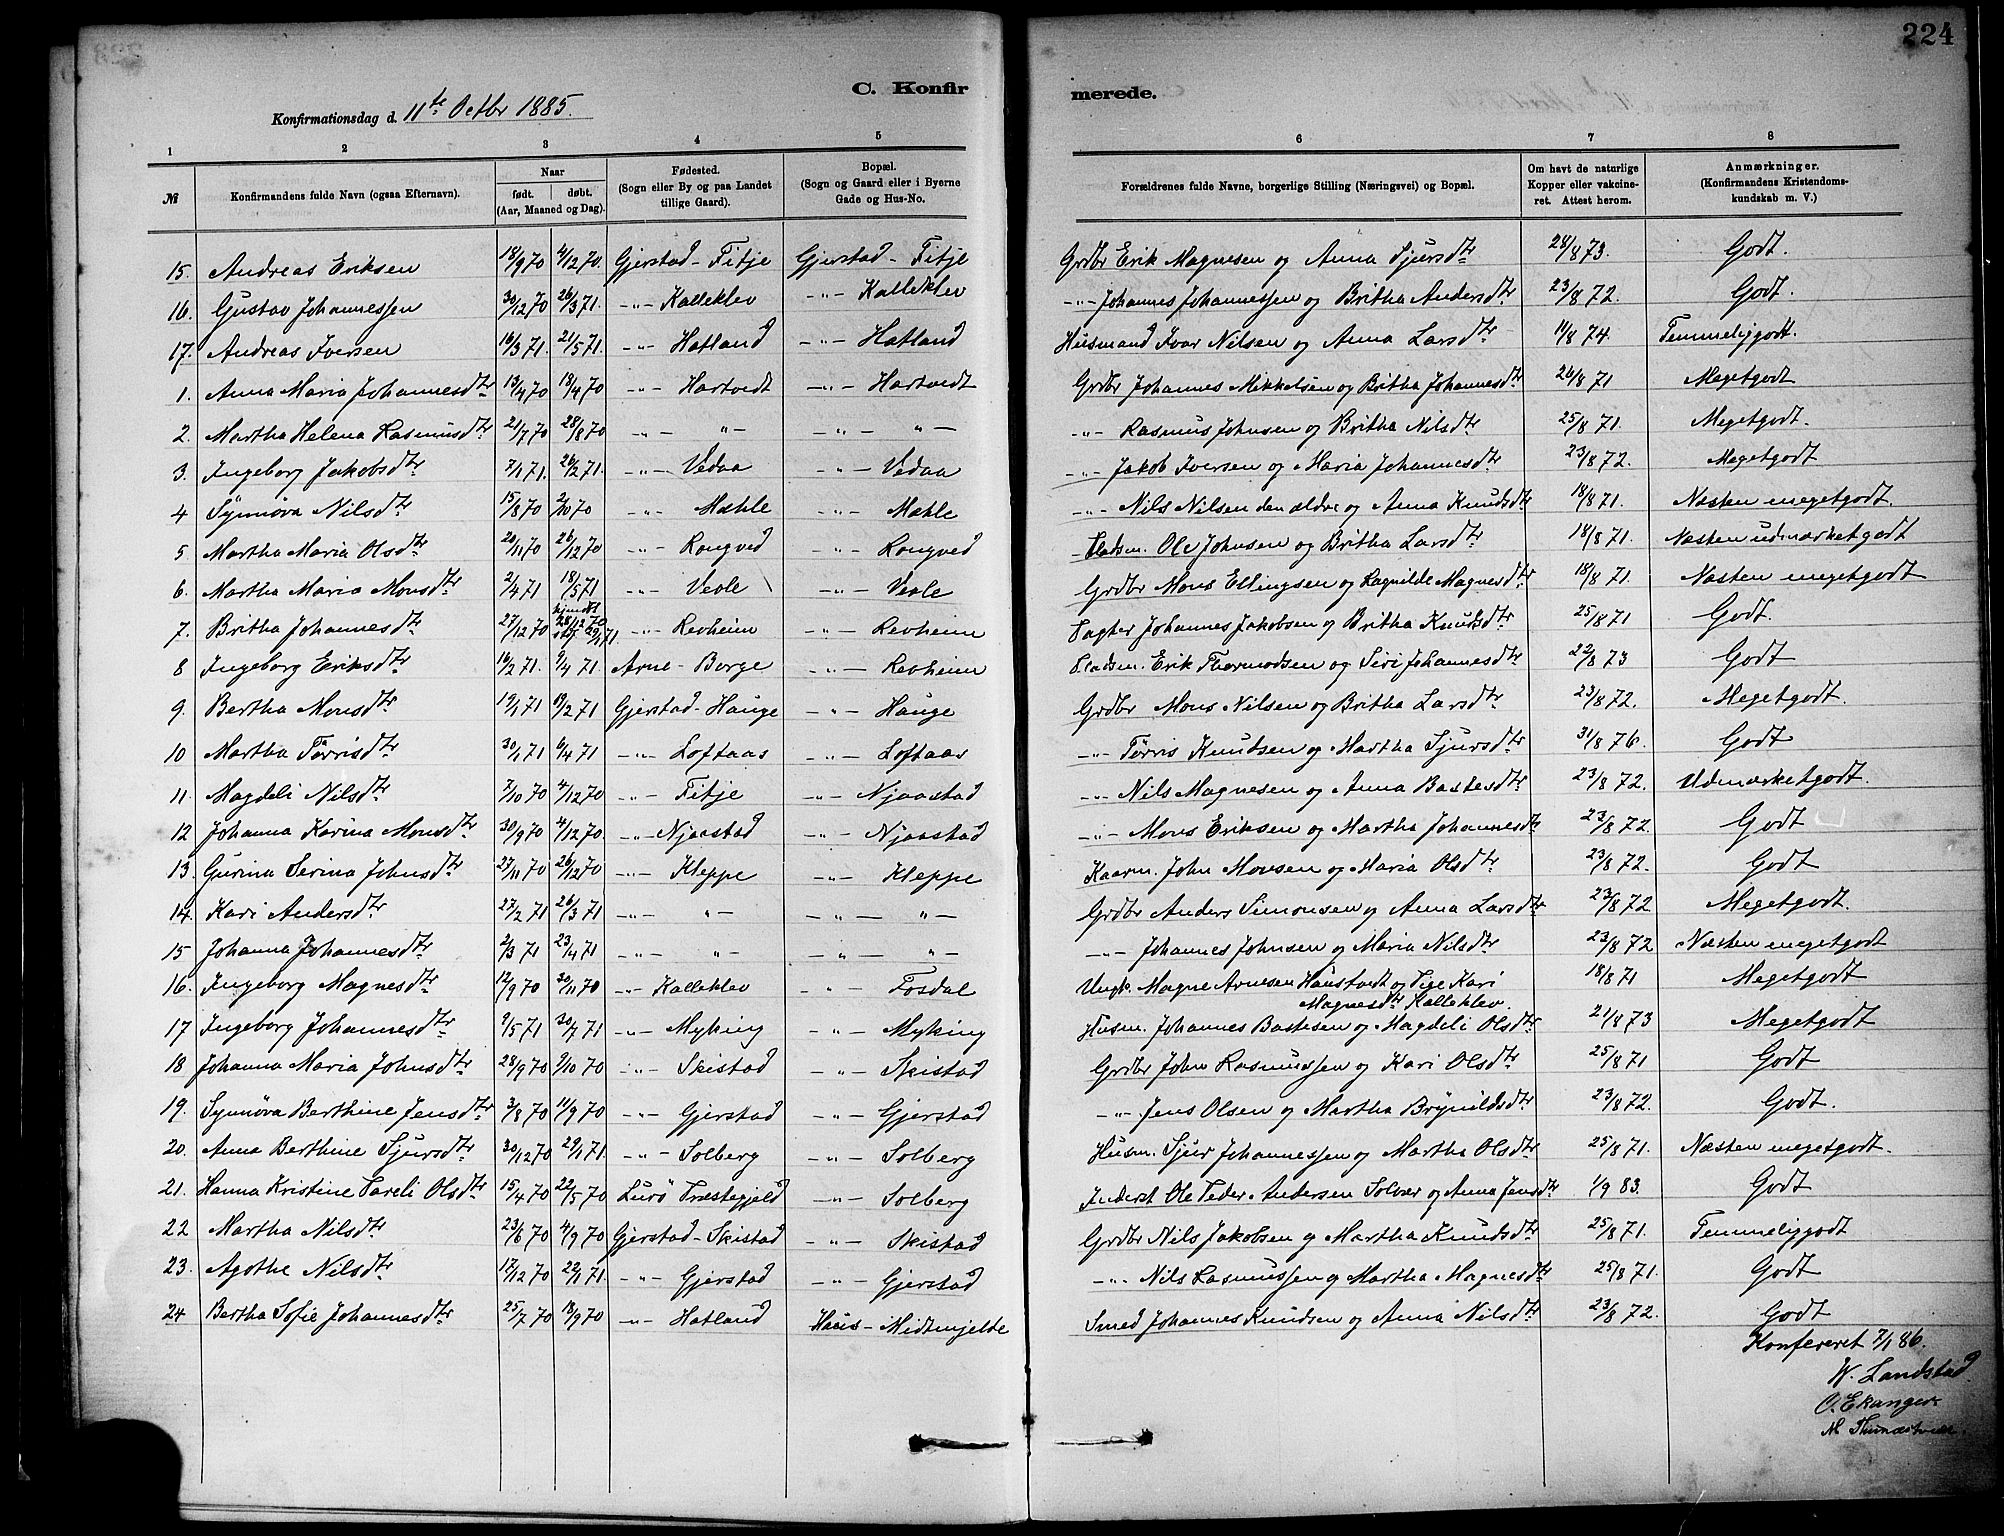 224
C. Konfirmerede.
Konfirmationsdag d. 11te Octbr 1885.
1 2 3 4 5 6 7 8
№ Konfirmandens fulde Navn (ogsaa Efternavn). Naar født. døbt. (Aar, Maaned og Dag). Fødested. (Sogn eller By og paa Landet tillige Gaard). Bopæl. (Sogn og Gaard eller i Byerne Gade og Hus-No. Forældrenes fulde Navne, borgerlige Stilling (Næringsvei) og Bopæl. Om havt de naturlige Kopper eller vakcineret. Attest herom. Anmærkninger. (Konfirmandens Kristendomskundskab m. V.)
15. Andreas Eriksen 18/9 70 4/12 70. Gjerstad - Fitje Gjerstad - Fitje Grdbr Erik Magnesen og Anna Sjursdtr 28/8 73. Godt.
16. Gustav Johannessen 30/12 70 26/3 71. -"- Kalleklev -"- Kalleklev -"- Johannes Johannessen og Britha Andersdtr 23/8 72. Godt.
17. Andreas Iversen 16/3 71. 21/5 71. -"- Hatland -"- Hatland Husmand Ivar Nilsen og Anna Larsdtr 11/8 74. Temmeligodt.
1. Anna Maria Johannesdtr 13/4 70 18/4 70 -"- Hartvedt -"- Hartvedt Grdbr Johannes Mikkelsen og Britha Johannesdtr 26/8 71 Megetgodt
2. Martha Helena Rasmusdtr 21/7 70 28/8 70 -"- -"- -"- -"- -"- Rasmus Johnsen og Britha Nilsdtr 25/8 71. Megetgodt.
3. Ingeborg Jakobsdtr 7/1 71. 26/2 71. -"- Vedaa -"- Vedaa -"- Jakob Iversen og Maria Johannesdtr 23/8 72. Megetgodt
4 Synnøva Nilsdtr 15/8 70 2/10 70 -"- Mæhle -"- Mæhle -"- Nils Nilsen den ældre og Anna Knudsdtr 18/8 71. Næsten megetgodt.
5 Martha Maria Olsdtr 20/11 70 26/12 70 -"- Rongved -"- Rongved Pladsm. Ole Johnsen og Britha Larsdtr 18/8 71. Næsten udmærketgodt
6. Martha Maria Monsdtr 2/4 71 18/5 71 -"- Veole -"- Veole Grdbr Mons Ellingsen og Ragnilde Magnesdtr 18/8 71. Næsten megetgodt
7. Britha Johannesdtr 27/12 70 hjmdt 28/12 70 stf. 29/1 71 -"- Revheim -"- Revheim Pagter Johannes Jakobsen og Britha Knudsdtr 25/8 71 Godt.
8 Ingeborg Eriksdtr 16/2 71. 9/4 71. Arne - Borge -"- Revheim Pladsm. Erik Thormodsen og Siri Johannesdtr 22/8 73 Godt
9. Bertha Monsdtr 19/1 71 19/2 71 Gjerstad - Hauge -"- Hauge Grdbr Mons Nilsen og Britha Larsdtr 23/8 72. Megetgodt.
10 Martha Tørrisdtr 30/1 71 6/4 71 -"- Loftaas -"- Loftaas -"- Tørris Knudsen og Martha Sjursdtr 31/8 76. Godt
11. Magdeli Nilsdtr 7/10 70 4/12 70 -"- Fitje -"- Njaastad -"- Nils Magnesen og Anna Bastesdtr 23/8 72. Udmærketgodt.
12 Johanna Karina Monsdtr 30/9 70 4/12 70. -"- Njaastad -"- Njaastad -"- Mons Eriksen og Martha Johannesdtr 23/8 72. Godt
13. Gurina Serina Johnsdtr 27/11 70 26/12 70 -"- Kleppe -"- Kleppe Kaarm. John Monsen og Maria Olsdtr 23/8 72. Godt
14. Kari Andersdtr 27/2 71 26/3 71 -"- -"- -"- -"- Grdbr Anders Simonsen og Anna Larsdtr 23/8 72 Megetgodt.
15 Johanna Johannesdtr 2/3 71 23/4 71 -"- -"- -"- -"- -"- Johannes Johnsen og Maria Nilsdtr 23/8 72 Næsten megetgodt
16. Ingeborg Magnesdtr 12/9 70 30/11 70 -"- Kalleklev -"- Fosdal Ungk. Magne Arnesen Haustvedt og Pige Kari Magnesdtr Kalleklev. 18/8 71 Megetgodt
17 Ingeborg Johannesdtr 9/5 71 30/7 71 -"- Myking -"- Myking Husm. Johannes Bastesen og Magdeli Olsdtr 21/8 73 Megetgodt
18 Johanna Maria Johnsdtr 28/9 70 9/10 70 -"- Skistad -"- Skistad Grdbr John Rasmussen og Kari Olsdtr 25/8 71 Godt
19. Synnøva Berthine Jensdtr 3/8 70 11/9 70 -"- Gjerstad -"- Gjerstad -"- Jens Olsen og Martha Brynildsdtr 23/8 72. Godt.
20. Anna Berthine Sjursdtr 30/12 70 29/1 71. -"- Solberg -"- Solberg Husm. Sjur Johannessen og Martha Olsdtr 25/8 71. Næsten megetgodt.
21. Hanna Kristine Sareli Olsdtr 15/4 70 22/5 70 Lurö Præstegjeld -"- Solberg Inderst Ole Peder Andersen Solvær og Anna Jensdtr 1/9 83. Godt
22 Martha Nilsdtr 23/6 70 4/9 70 Gjerstad - Skistad -"- Skistad Grdbr Nils Jakobsen og Martha Knudsdtr 25/8 71. Temmeliggodt
23. Agathe Nilsdtr 12/12 70 22/1 71. -"- Gjerstad -"- Gjerstad -"- Nils Rasmussen og Martha Magnesdtr 25/8 71. Godt
24 Bertha Sofie Johannesdtr 25/7 70 18/9 70 -"- Hatland Haus - Midtmjelde Smed Johannes Knudsen og Anna Nilsdtr 23/8 72. Godt
Konfereret 7/1 86.
W. Landstad
O. Ekanger